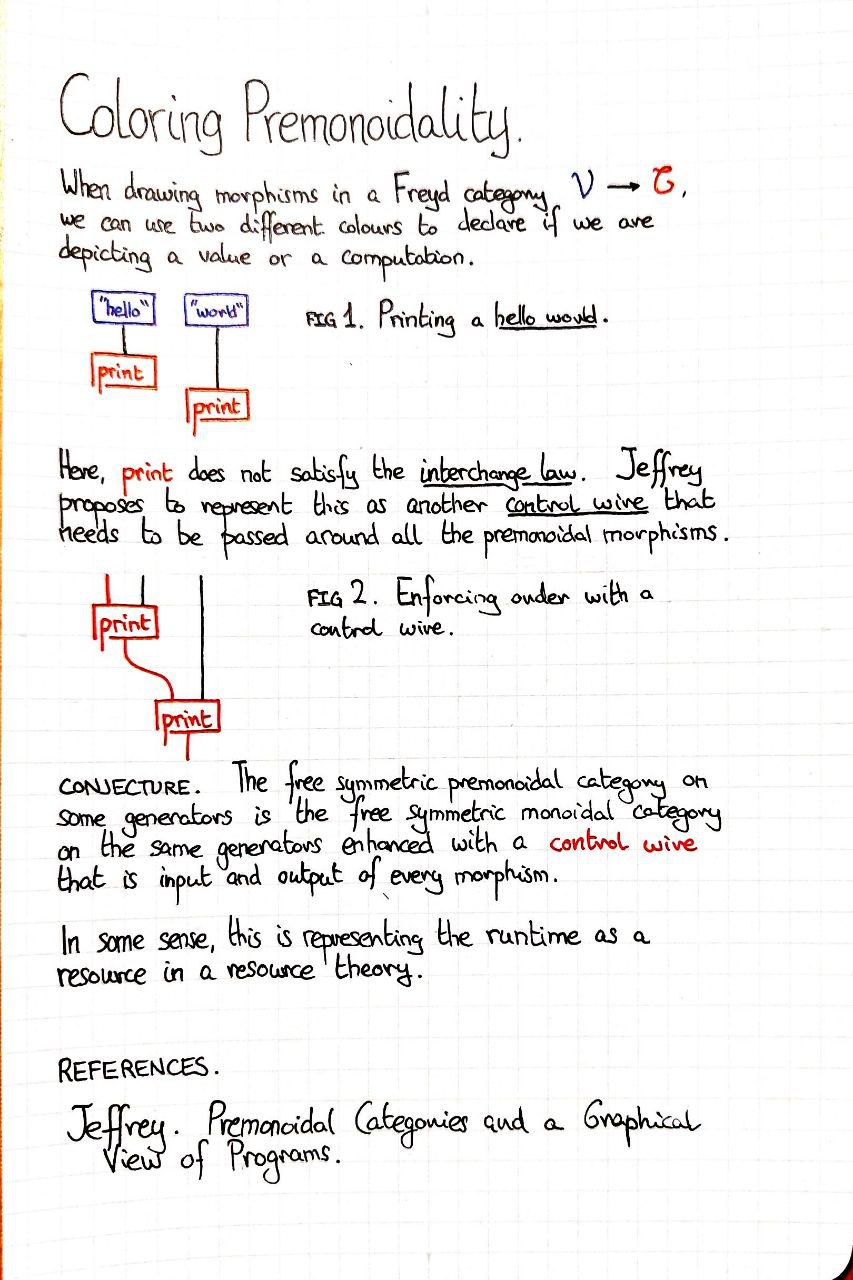 Coloring Premonoidality.
When drawing morphisms in a Freyd category, V → C,
we can use two different colours to declare if we are
depicting a value or a computation.
"hello" "world"
FIG 1. Printing a hello world.
print
print
Here, print does not satisfy the interchange law. Jeffrey
proposes to represent this as another control wire that
needs to be passed around all the premonoidal morphisms.
print
FIG 2. Enforcing order with a
control wire.
print
CONJECTURE. The free symmetric premonoidal category on
some generators is the free symmetric monoidal category
on the same generators enhanced with a control wire
that is input and output of every morphism.
In some sense, this is representing the runtime as a
resource in a resource theory.
REFERENCES.
Jeffrey. Premonoidal Categories and a Graphical
View of Programs.